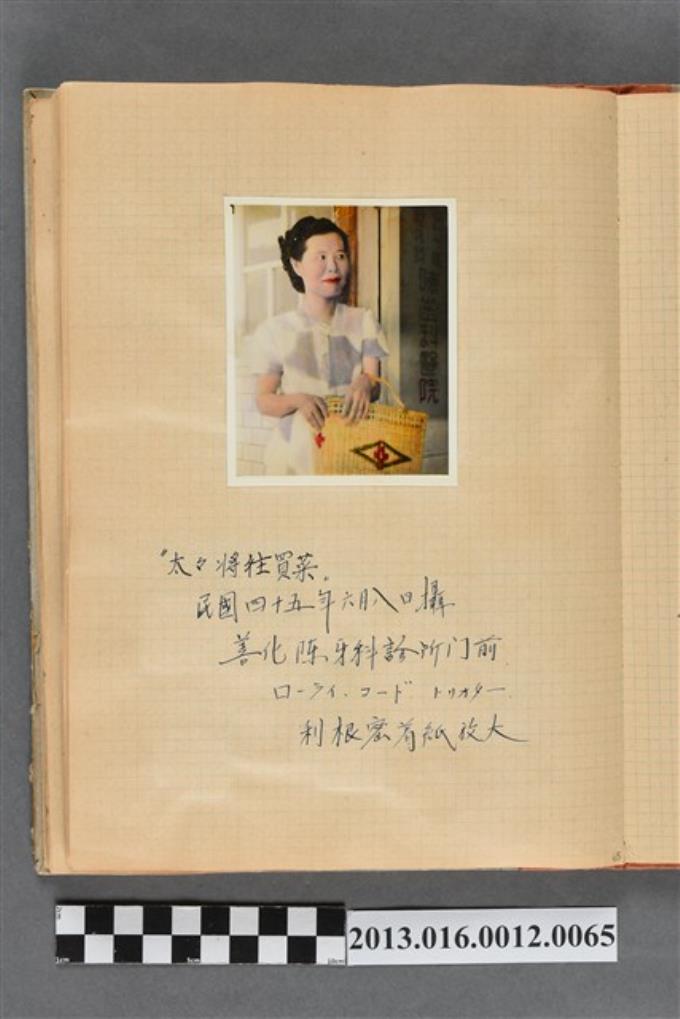 陳齒科醫院
"太々將往買菜"
民國四十五年六月八日攝
善化陳牙科診所门前
ローライ.コード トリオター.
利根密着紙放大
65
1cm 5cm 10cm
2013.016.0012.0065